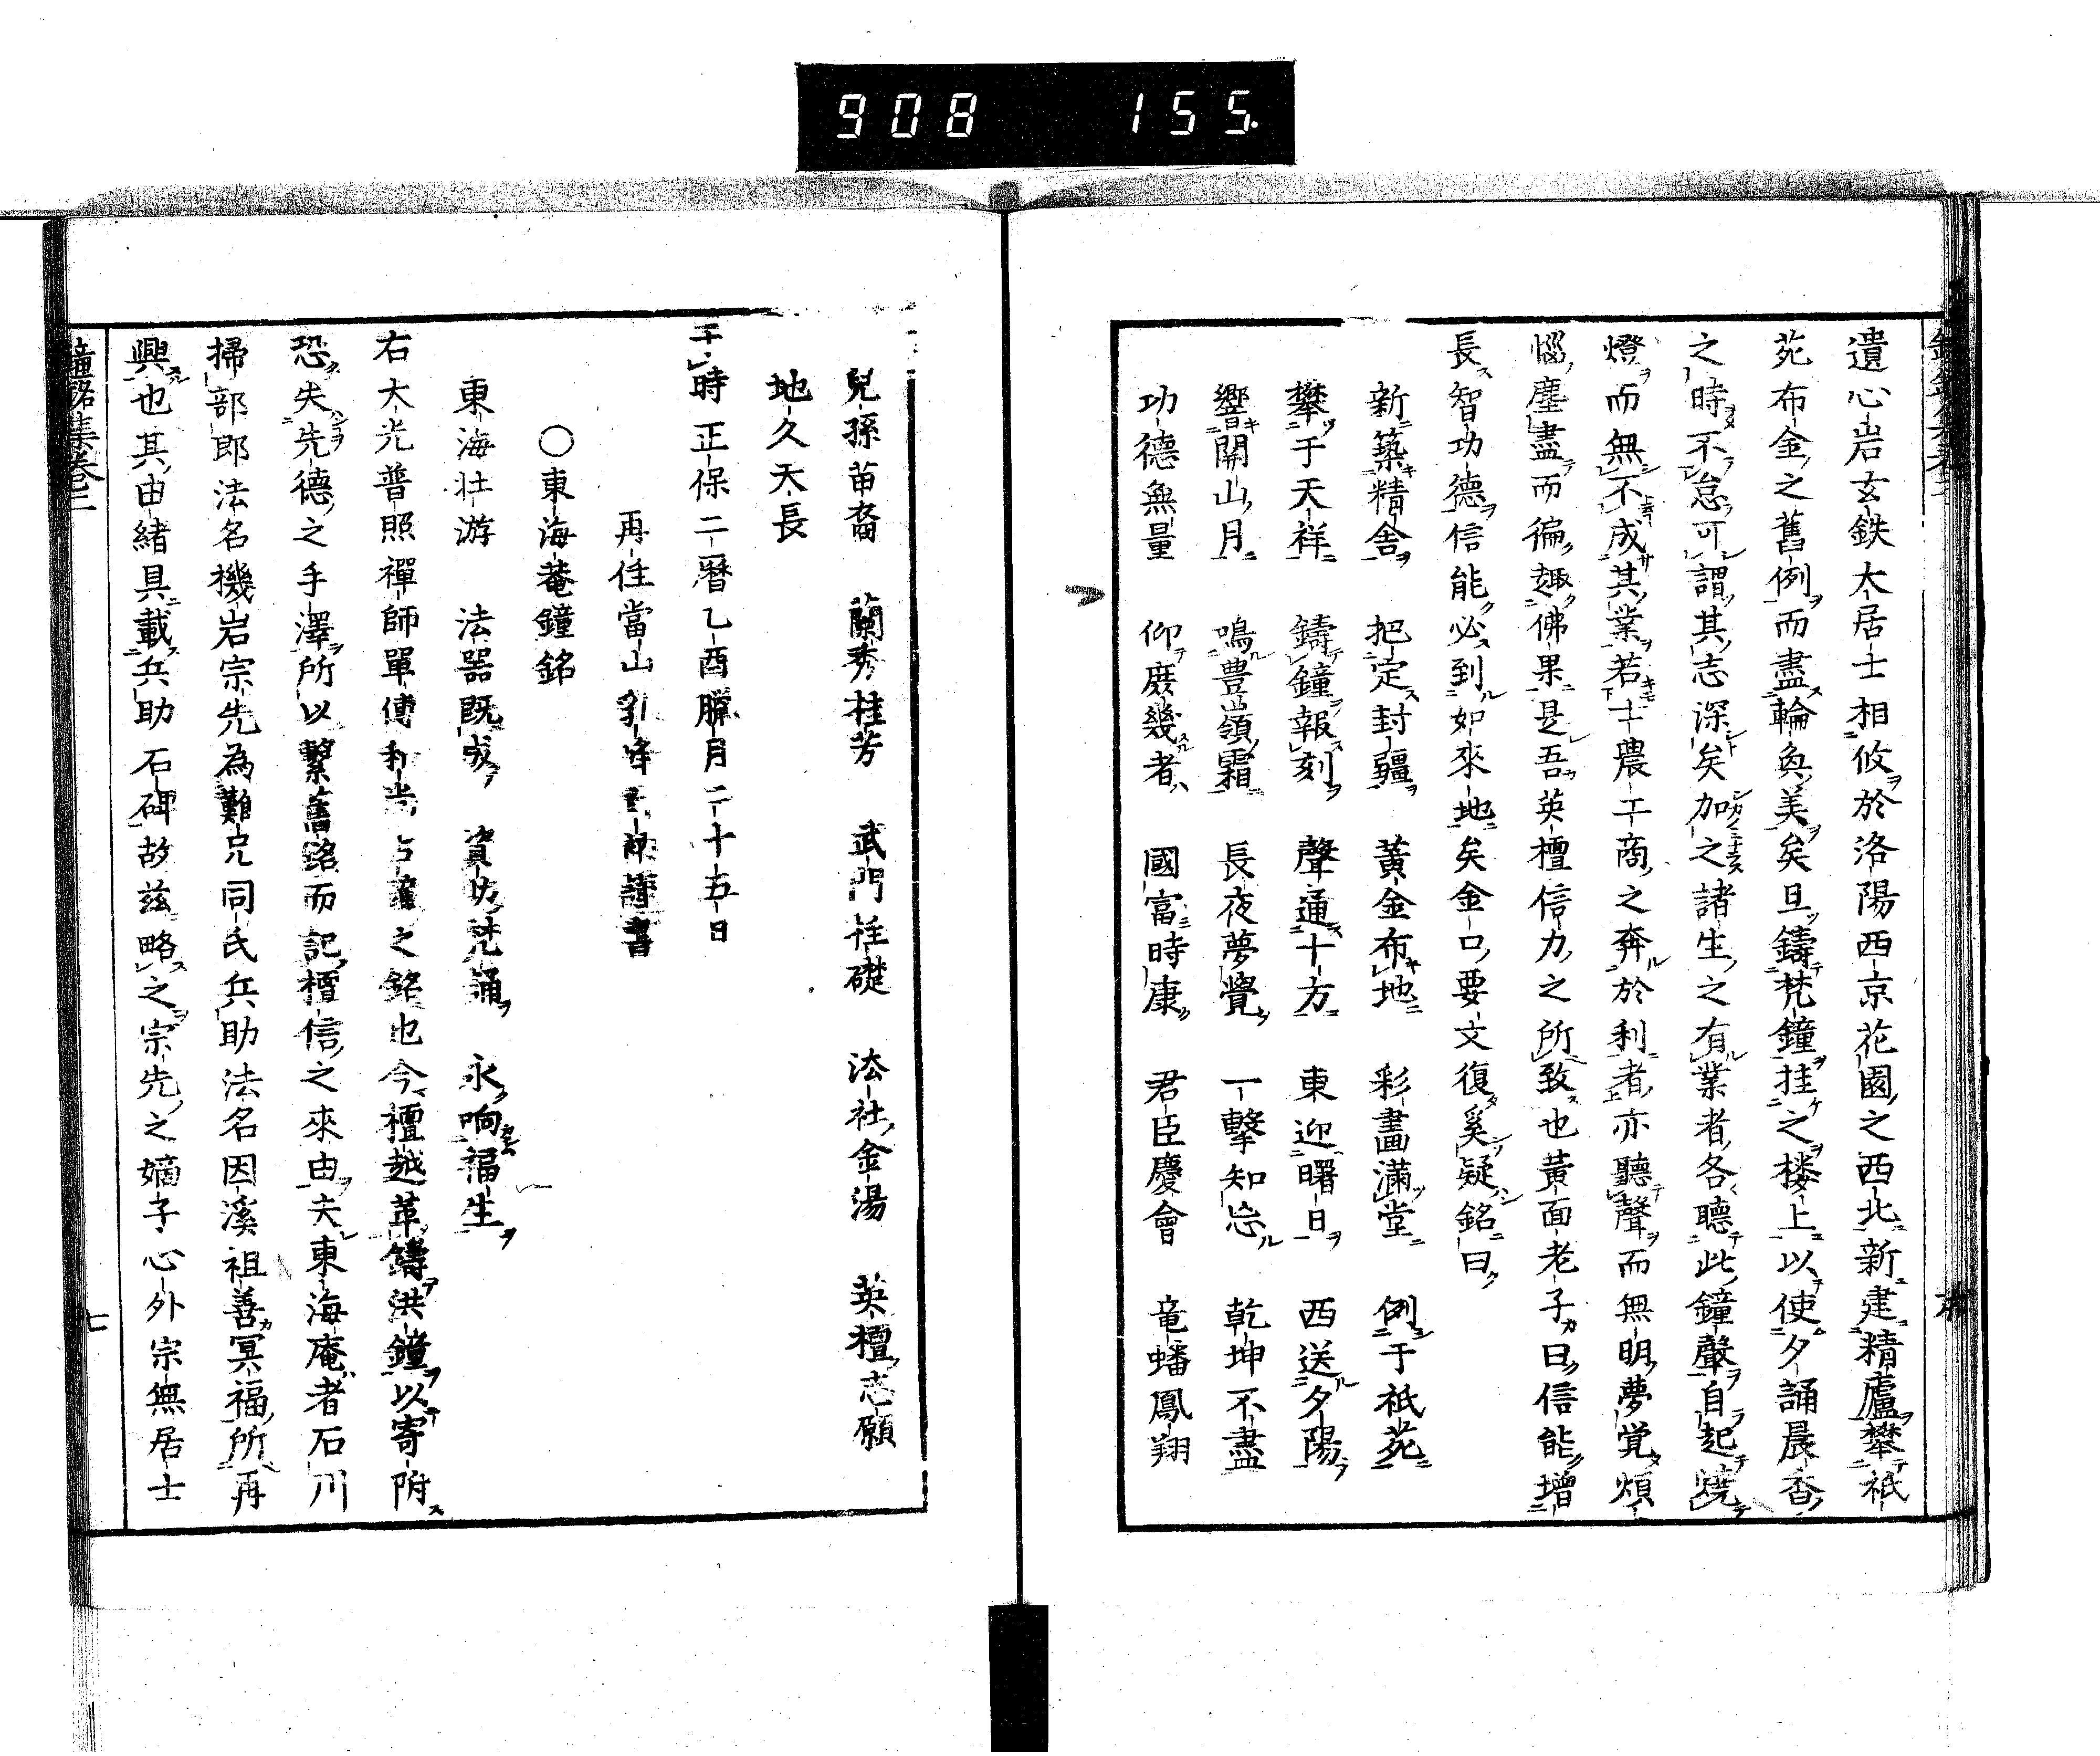 908 155.
遺心岩玄鉄大居士相攸於洛陽西京花園之西北新建精廬攀祇
苑布金之舊例而盡輪奐美矣且鑄梵鐘挂之楼上以使夕誦晨香
之時不怠可謂其志深矣加之諸生之有業者各聽此鐘聲自起燒
燈而無不成其業若士農工商之奔於利者亦聽聲而無明夢覚煩
惱塵盡而徧趣佛果是吾英檀信力之所致也黄面老子曰信能增
長智功德信能必到如來地矣金口要文復奚疑銘曰
新築精舍 把定封疆 黃金布地 彩畫滿堂 例于祇苑
攀于天祥 鑄鐘報刻 聲通十方 東迎曙日 西送夕陽
響開山月 鳴豊嶺霜 長夜夢覺 一擊知忩 乾坤不盡
功德無量 仰庶幾者 國富時康 君臣慶會 竜蟠鳳翔
兒孫苗裔 蘭秀桂芳 武門柱礎 法社金湯 英檀志願
地久天長
于時正保二暦乙酉臘月二十五日
再住當山乳峰 謹書
○東海菴鐘銘
東海壮游 法噐既成 資切梵誦 永响福生
右大光普照禪師單傳和尚 之銘也今檀越革鑄洪鐘以寄附
恐失先德之手澤所以繫舊銘而記檀信之來由夫東海庵者石川
掃部郎法名機岩宗先為難兄同氏兵助法名因溪祖善冥福所再
興也其由緒具載兵助石碑故茲略之宗先之嫡子心外宗無居士
鐘銘集卷二
七